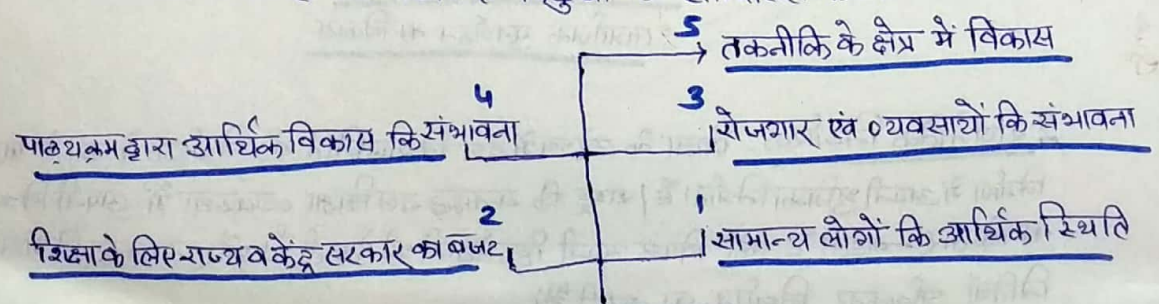 5 तकनीकि के क्षेत्र में विकास
4 पाठ्यक्रम द्वारा आर्थिक विकास कि संभावना
3 रोजगार एवं व्यवसायों कि संभावना
2 शिक्षा के लिए राज्य व केंद्र सरकार का बजट
1 सामान्य लोगों कि आर्थिक स्थिति